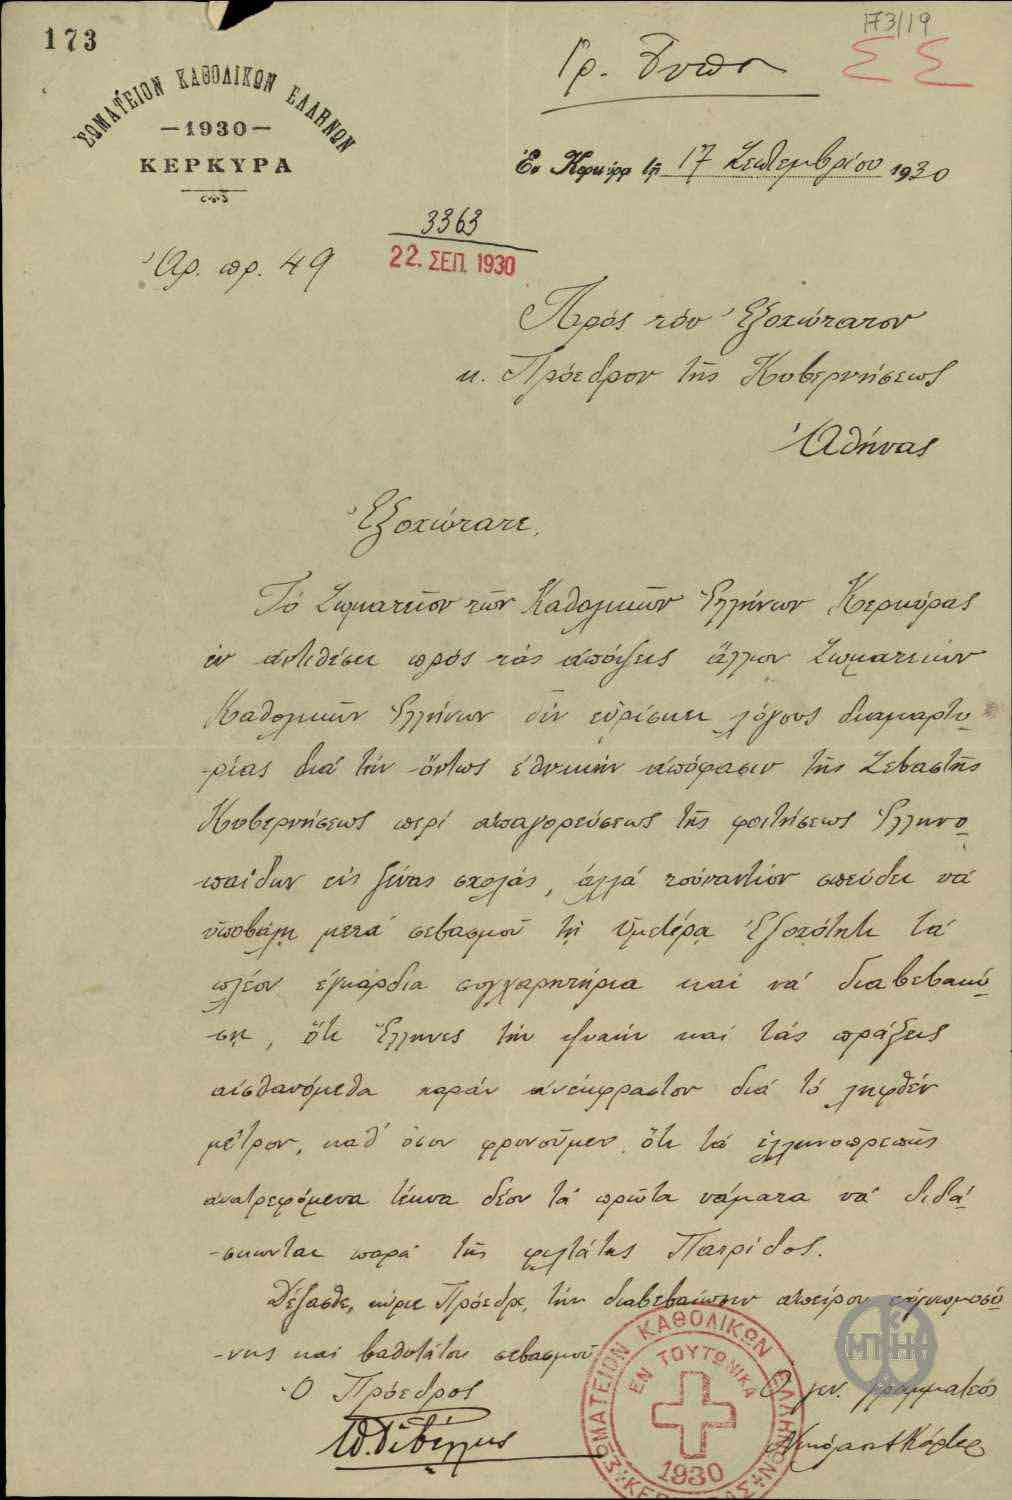 173
173/19
ΣΣ
ΣΩΜΑΤΕΙΟΝ ΚΑΘΟΛΙΚΩΝ ΕΛΛΗΝΩΝ
—1930—
ΚΕΡΚΥΡΑ
Ἐν Κερκύρᾳ τῇ 17 Σεπτεμβρίου 1930
3363
22. ΣΕΠ. 1930
Ἀρ. πρ. 49
Πρός τόν Ἐξοχώτατον
κ. Πρόεδρον τῆς Κυβερνήσεως
Ἀθήνας
Ἐξοχώτατε,
Τό Σωματεῖον τῶν Καθολικῶν Ἑλλήνων Κερκύρας
ἐν ἀντιθέσει πρός τάς ἀπόψεις ἄλλων Σωματείων
Καθολικῶν Ἑλλήνων δέν εὑρίσκει λόγους διαμαρτυ-
-ρίας διά τήν ὄντως ἐθνικήν ἀπόφασιν τῆς Σεβαστῆς
Κυβερνήσεως περί ἀπαγορεύσεως τῆς φοιτήσεως Ἑλληνο-
-παίδων εἰς ξένας σχολάς, ἀλλά τοὐναντίον σπεύδει νά
ὑποβάλῃ μετά σεβασμοῦ τῇ Ὑμετέρᾳ Ἐξοχότητι τά
πλέον ἐγκάρδια συγχαρητήρια καί νά διαβεβαιώ-
-σῃ, ὅτι Ἕλληνες τήν ψυχήν καί τάς πράξεις
αἰσθανόμεθα χαράν ἀνέκφραστον διά τό ληφθέν
μέτρον, καθ' ὅσον φρονοῦμεν, ὅτι τά ἑλληνοπρεπῶς
ἀνατρεφόμενα τέκνα δέον τά πρῶτα νάματα νά διδά-
-σκωνται παρά τῆς φιλτάτης Πατρίδος.
Δέξασθε, κύριε Πρόεδρε, τήν διαβεβαίωσιν ἀπείρου εὐγνωμοσύ-
-νης καί βαθυτάτου σεβασμοῦ
Ὁ Πρόεδρος
Ὁ γεν. γραμματεύς
ΣΩΜΑΤΕΙΟΝ ΚΑΘΟΛΙΚΩΝ ΕΛΛΗΝΩΝ ΚΕΡΚΥΡΑΣ
ΕΝ ΤΟΥΤΩ ΝΙΚΑ
1930